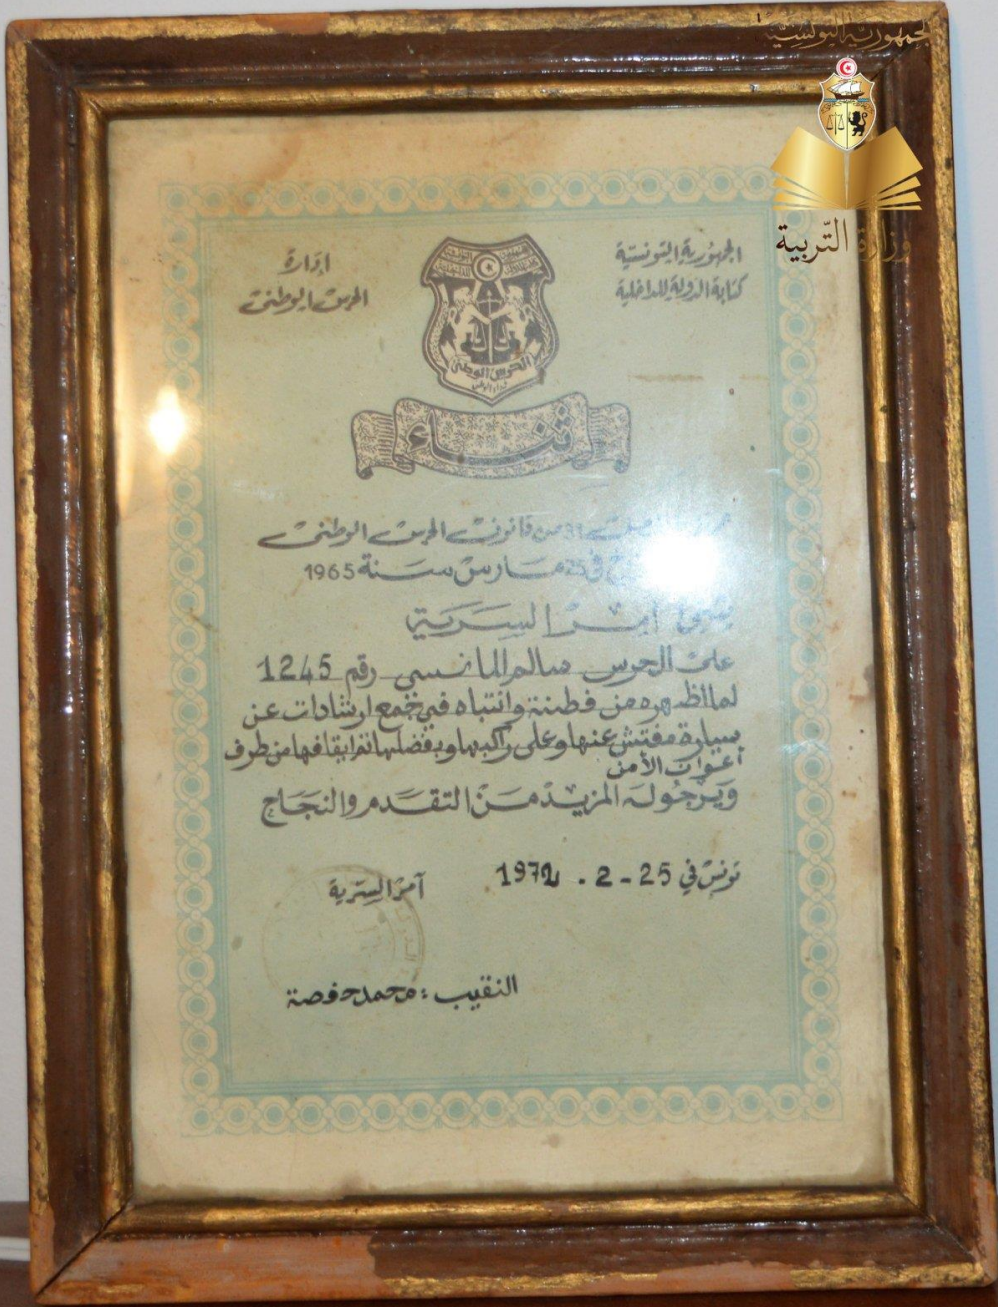 الجمهورية التونسية
وزارة التربية
الجمهورية التونسية
كتابة الدولة للداخلية
إدارة
الحرس الوطني
الحرس الوطني
ثناء
31 من قانون الحرس الوطني
في 25 مارس سنة 1965
يثني آمر السرية
على الحرس سالم الماسي رقم 1245
لما اظهره من فطنة وانتباه في جمع ارشادات عن
سيارة مفتش عنها وعلى راكبيها وبفضلها تم ايقافها من طرف
أعوان الأمن
ويرجو له المزيد من التقدم والنجاح
تونس في 25 - 2 - 1972
آمر السرية
النقيب : محمد حفصة